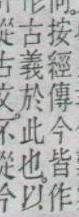 何按經傳今皆
作古義於此也以作
從古文不從今